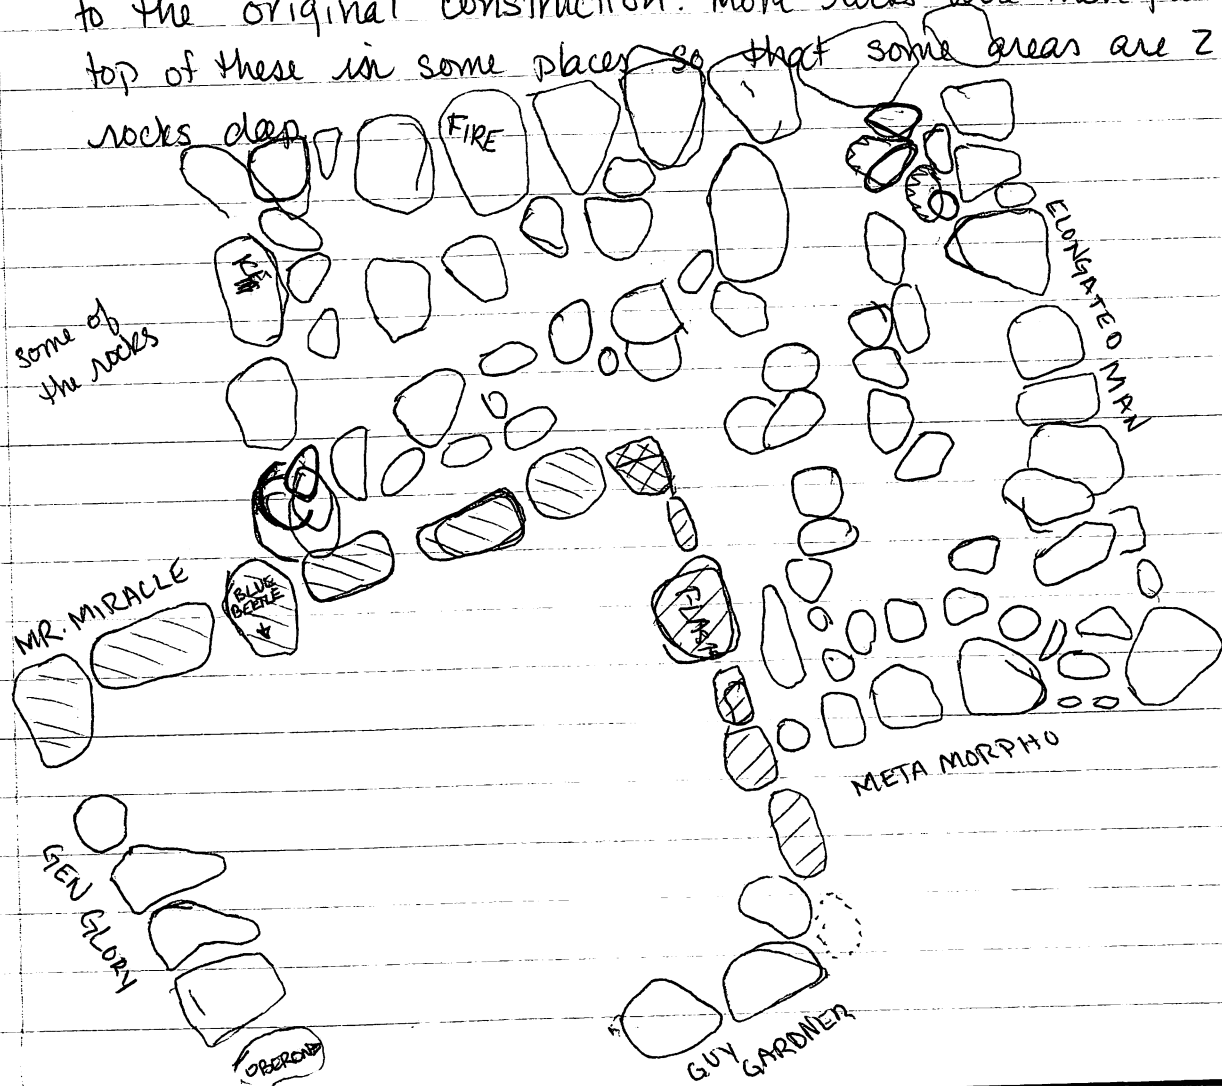 to the original construction. More rocks were then put
top of these in some places so that some areas are 2
rocks deep
FIRE
ELONGATED MAN
some of
the rocks
MR. MIRACLE
BLUE
BEETLE
FLASH
META MORPHO
GEN GLORY
OBERON
GUY
GARDNER